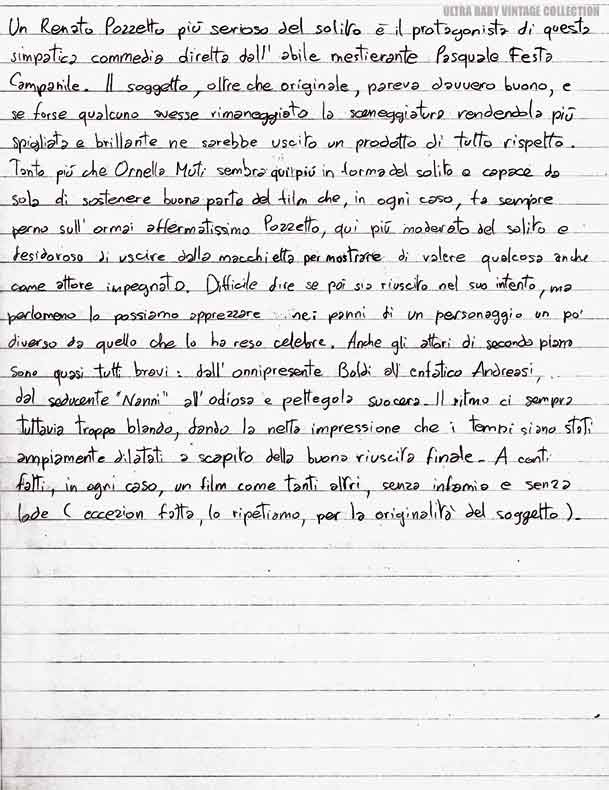 ULTRA BABY VINTAGE COLLECTION
Un Renato Pozzetto più serioso del solito è il protagonista di questa
simpatica commedia diretta dall' abile mestierante Pasquale Festa
Campanile. Il soggetto, oltre che originale, pareva davvero buono, e
se forse qualcuno avesse rimaneggiato la sceneggiatura rendendola più
spigliata e brillante ne sarebbe uscito un prodotto di tutto rispetto.
Tanto più che Ornella Muti sembra qui più in forma del solito e capace da
sola di sostenere buona parte del film che, in ogni caso, fa sempre
perno sull' ormai affermatissimo Pozzetto, qui più moderato del solito e
desideroso di uscire dalla macchietta per mostrare di valere qualcosa anche
come attore impegnato. Difficile dire se poi sia riuscito nel suo intento, ma
perlomeno lo possiamo apprezzare nei panni di un personaggio un po'
diverso da quello che lo ha reso celebre. Anche gli attori di secondo piano
sono quasi tutti bravi: dall' onnipresente Boldi all' enfatico Andreasi,
dal seducente "Nanni" all' odiosa e pettegola suocera. Il ritmo ci sembra
tuttavia troppo blando, dando la netta impressione che i tempi siano stati
ampiamente dilatati a scapito della buona riuscita finale. A conti
fatti, in ogni caso, un film come tanti altri, senza infamia e senza
lode (eccezion fatta, lo ripetiamo, per la originalità del soggetto).